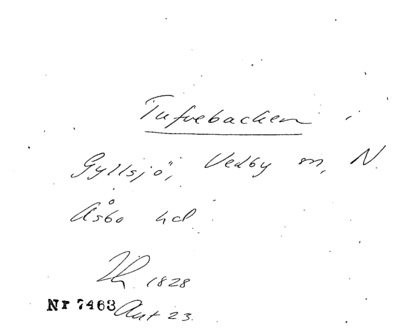 Tufvebacken i
Gyllsjö, Vedby sn, N.
Åsbo hd
1828
Nr 7463 Ant 23.